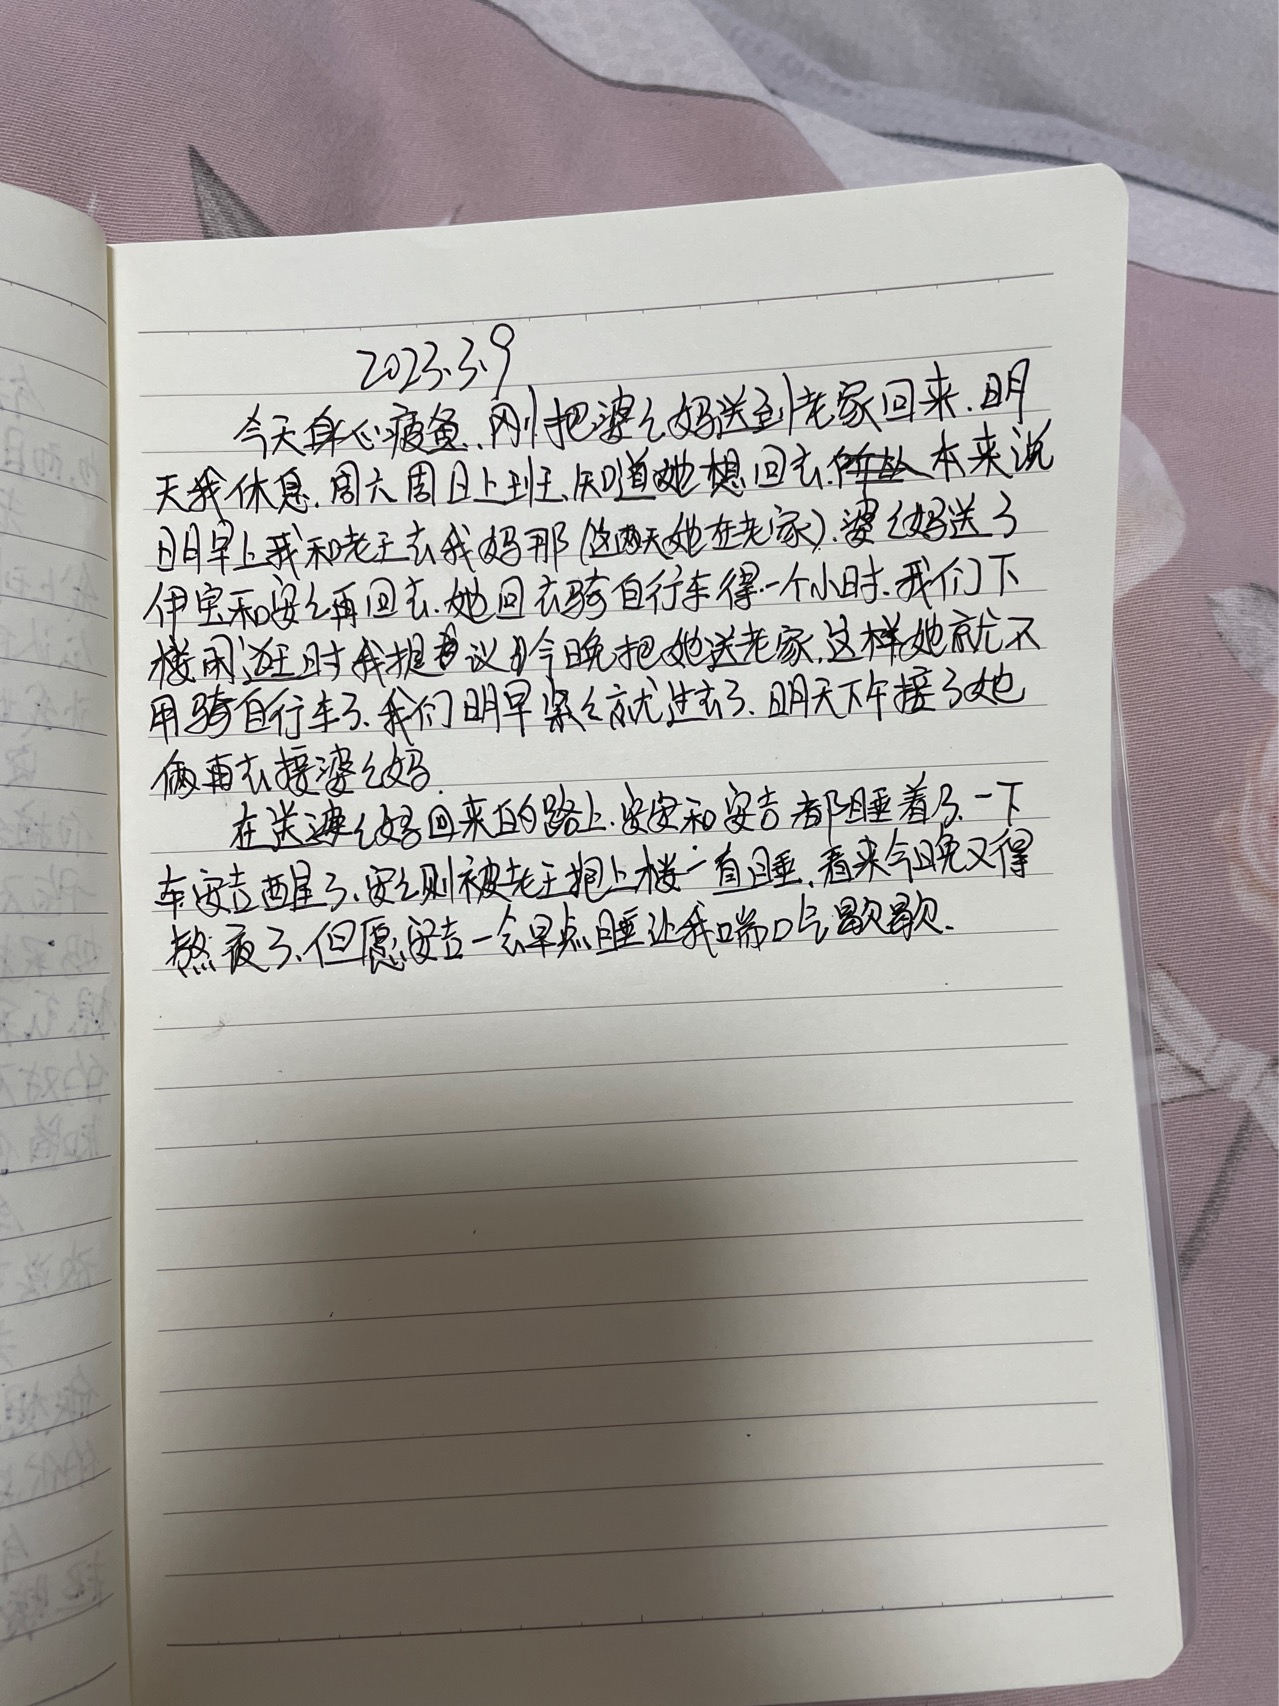 2023.3.9
今天身心疲惫.刚把婆婆妈送到老家回来.明
天我休息.周六周日上班.知道她想回去.本来说
明早上我和老王去我妈那(这两天她在老家).婆婆妈送了
伊宝和安安再回去.她回去骑自行车得一个小时.我们下
楼闲逛时我提议今晚把她送老家.这样她就不
用骑自行车了.我们明早紧紧就过去了.明天下午接了她
俩再去接婆婆妈.
在送婆婆妈回来的路上.安安和安吉都睡着了.一下
车安吉醒了.安安则被老王抱上楼一直睡.看来今晚又得
熬夜了.但愿安吉一会早点睡让我喘口气歇歇.